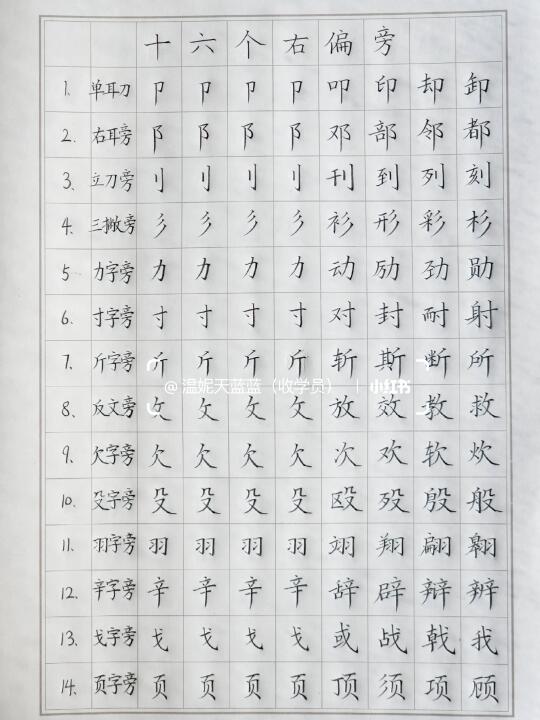 十六个右偏旁
1. 单耳刀 卩 卩 卩 卩 叩 印 却 卸
2. 右耳旁 阝 阝 阝 阝 邓 部 邻 都
3. 立刀旁 刂 刂 刂 刂 刊 到 列 刻
4. 三撇旁 彡 彡 彡 彡 衫 形 彩 杉
5 力字旁 力 力 力 力 动 励 劲 勋
6. 寸字旁 寸 寸 寸 寸 对 封 耐 射
7. 斤字旁 斤 斤 斤 斤 斩 斯 断 所
@温妮天蓝蓝（收学员） | 小红书
8. 反文旁 攵 攵 攵 攵 放 效 教 救
9. 欠字旁 欠 欠 欠 欠 次 欢 软 炊
10. 殳字旁 殳 殳 殳 殳 殴 殁 殷 般
11. 羽字旁 羽 羽 羽 羽 翊 翔 翩 翱
12. 辛字旁 辛 辛 辛 辛 辞 辟 辩 辨
13. 戈字旁 戈 戈 戈 戈 或 战 戟 我
14. 页字旁 页 页 页 页 顶 须 项 顾